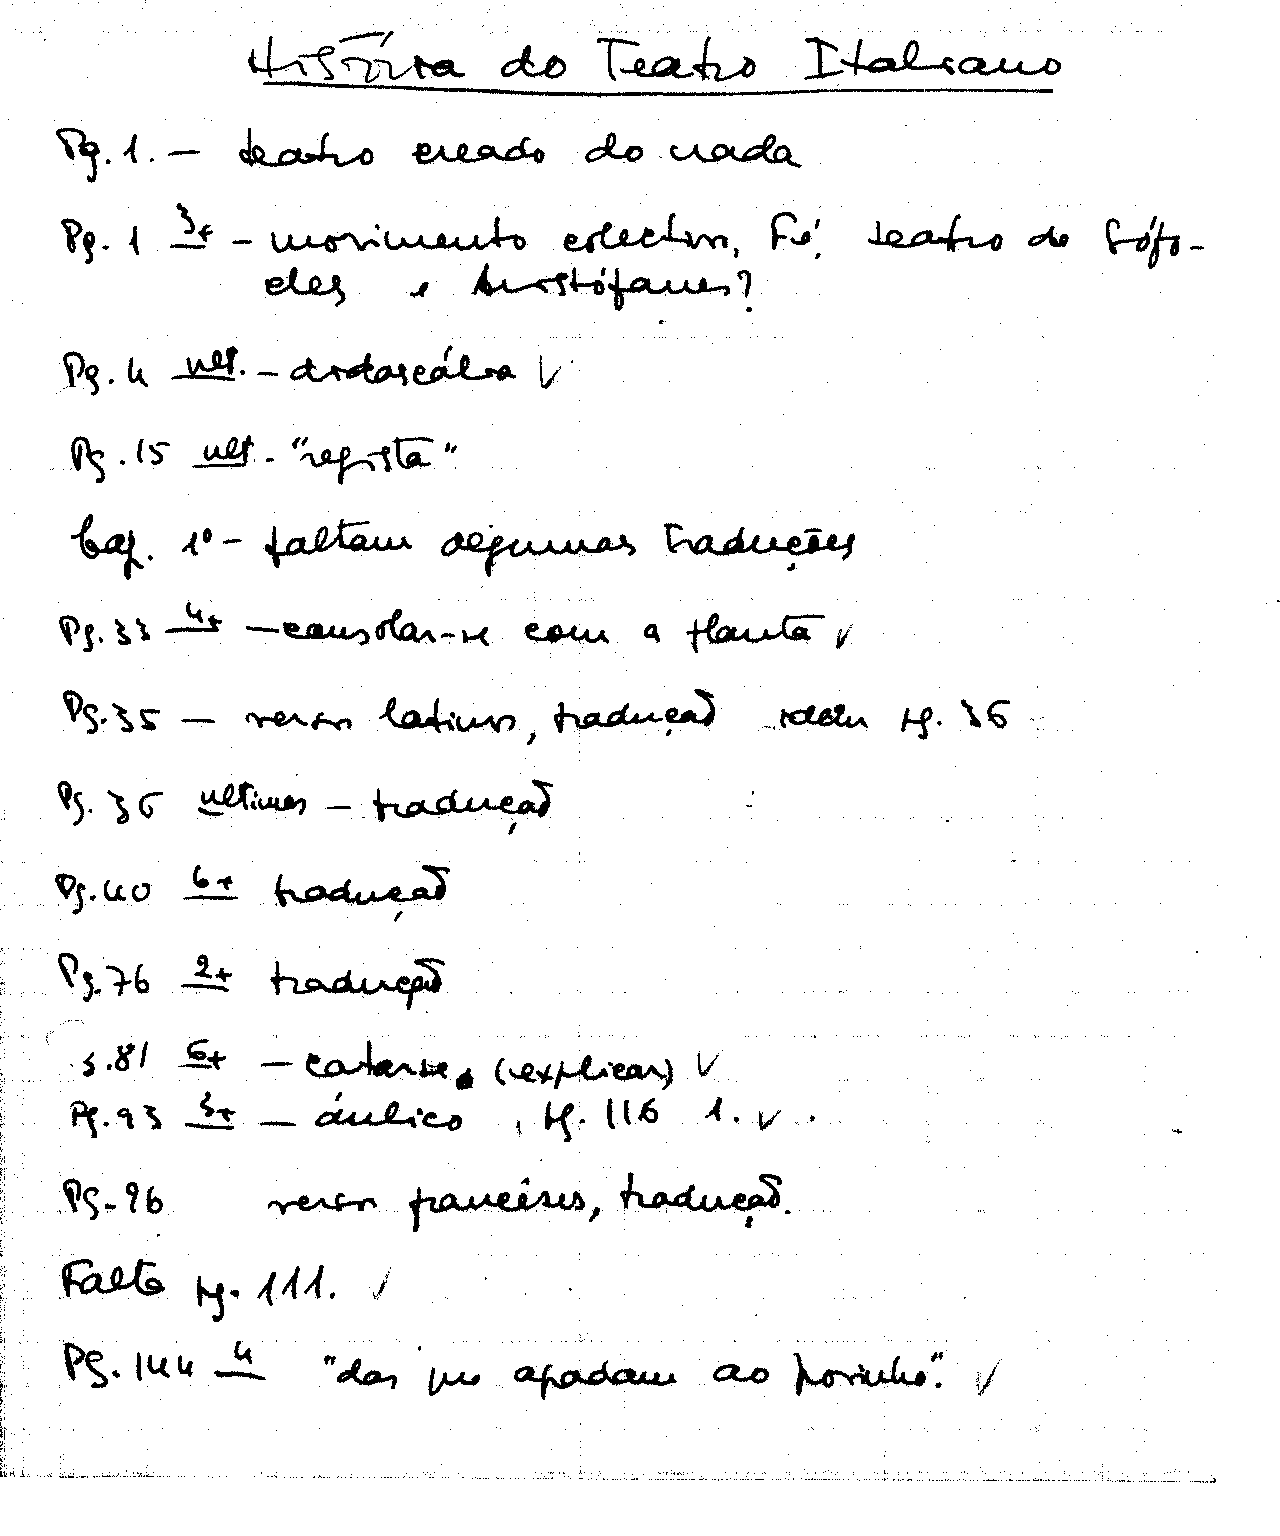 História do Teatro Italiano
Pg. 1. - teatro creado do nada
Pg. 1 3+ - movimento colectivo, Fé, teatro de Sófo-
cles e Aristófanes?
Pg. 4 ult. - didascália ✓
Pg. 15 ult. - "regista"
Cap. 1º - faltam algumas traduções
Pg. 33 4+ - consolar-se com a flauta ✓
Pg. 35 - versos latinos, tradução idem pg. 36
Pg. 36 ultimas - tradução
Pg. 40 6+ tradução
Pg. 76 2+ tradução
g. 81 6+ - catarse. (explicar) ✓
Pg. 93 3+ - áulico, pg. 116 1. ✓.
Pg. 96 versos franceses, tradução.
Falta pg. 111. ✓
Pg. 144 4 "das que agradam ao povinho". ✓